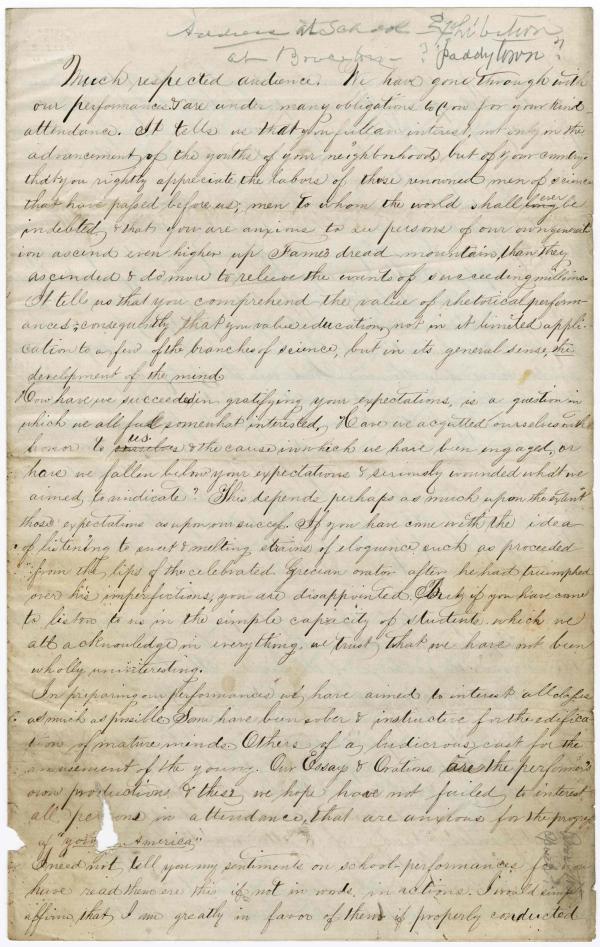 Address at School Exhibition
at "Paddytown"?
Much respected audience. We have gone through with
our performances & are under many obligations to you for your kind
attendance. It tells us that you feel an interest, not only in the
advancement of the youths of your neighborhood, but of your country
that you rightly appreciate the labors of those renowned men of science
that have passed before us; men to whom the world shall ever be
indebted, & that you are anxious to see persons of our own generat
ion ascend even higher up Fame's dread mountain, than they
ascended & do more to relieve the wants of succeeding millions.
It tell us that you comprehend the value of rhetorical perform-
ances; consequently that you value education, not in it limited appli-
cation to a few of the branches of science, but in its general sense, the
development of the mind
How have we succeeded in gratifying your expectations, is a question in
which we all feel somewhat interested. Have we acquitted ourselves with
honor to us & the cause in which we have been engaged, or
have we fallen below your expectations & seriously wounded what we
aimed to vindicate? This depends perhaps as much upon the extent
those expectations as upon our success. If you have come with the idea
of listening to sweet & melting strains of eloquence such as proceeded
from the lips of the celebrated Grecian orator after he had triumphed
over his imperfections, you are disappointed. But if you have came
to listen to us in the simple capacity of students, which we
all acknowledge in everything, we trust that we have not been
wholly uninteresting.
In preparing our performances we have aimed to interest all classes
as much as possible. Some have been sober & instructive for the edifica
tion of mature minds. Others of a ludicrous cast for the
amusement of the young. Our Essays & Orations are the performer's
own productions & these we hope have not failed to interest
all persons in attendance, that are anxious for the progress
of "young America"
I need not tell you my sentiments on school-performances for you
have read them ere this if not in words, in actions. I would simp
affirm that I am greatly in favor of them if properly conducted